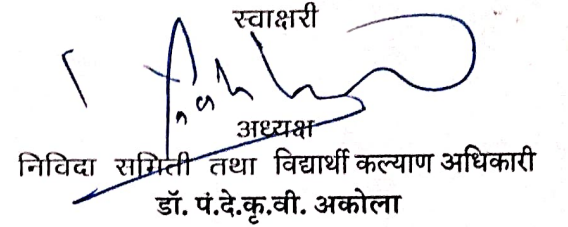 स्वाक्षरी
अध्यक्ष
निविदा समिती तथा विद्यार्थी कल्याण अधिकारी
डॉ. पं.दे.कृ.वी. अकोला